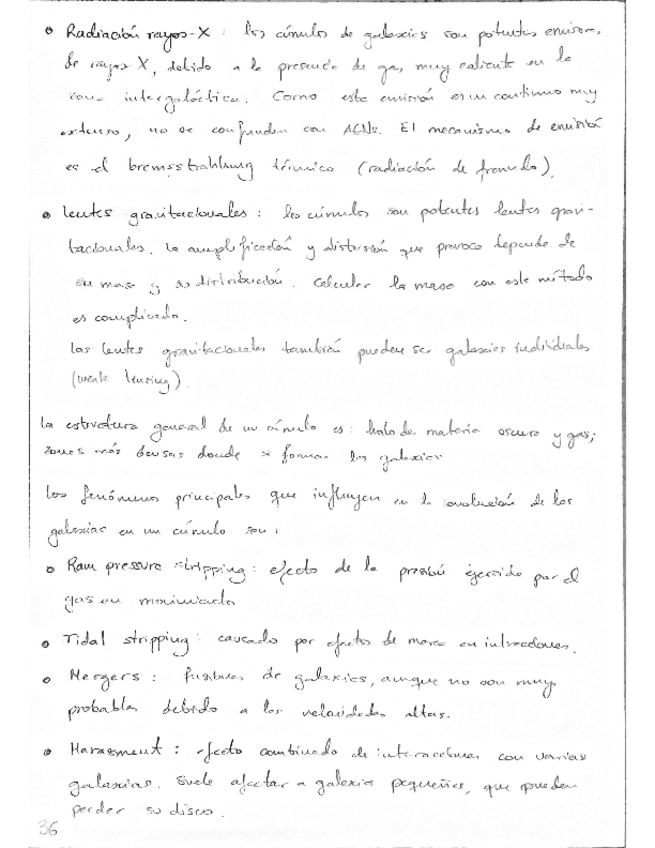 • Radiación rayos-X : los cúmulos de galaxias son potentes emisores
de rayos X, debido a la presencia de gas muy caliente en la
zona intergaláctica. Como esta emisión es un continuo muy
extenso, no se confunden con AGNs. El mecanismo de emisión
es el bremsstrahlung térmico (radiación de frenado).
• Lentes gravitacionales : los cúmulos son potentes lentes gravi-
tacionales. La amplificación y distorsión que provoca depende de
su masa y su distribución. Calcular la masa con este método
es complicado.
Las lentes gravitacionales también pueden ser galaxias individuales
(weak lensing).
La estructura general de un cúmulo es: halo de materia oscura y gas;
zonas más densas donde se forman las galaxias
Los fenómenos principales que influyen en la evolución de las
galaxias en un cúmulo son:
• Ram pressure stripping: efecto de la presión ejercida por el
gas en movimiento
• Tidal stripping: causado por efectos de marea en interacciones.
• Mergers : fusiones de galaxias, aunque no son muy
probables debido a las velocidades altas.
• Harassment : efecto combinado de interacciones con varias
galaxias. Suele afectar a galaxias pequeñas, que pueden
perder su disco.
36